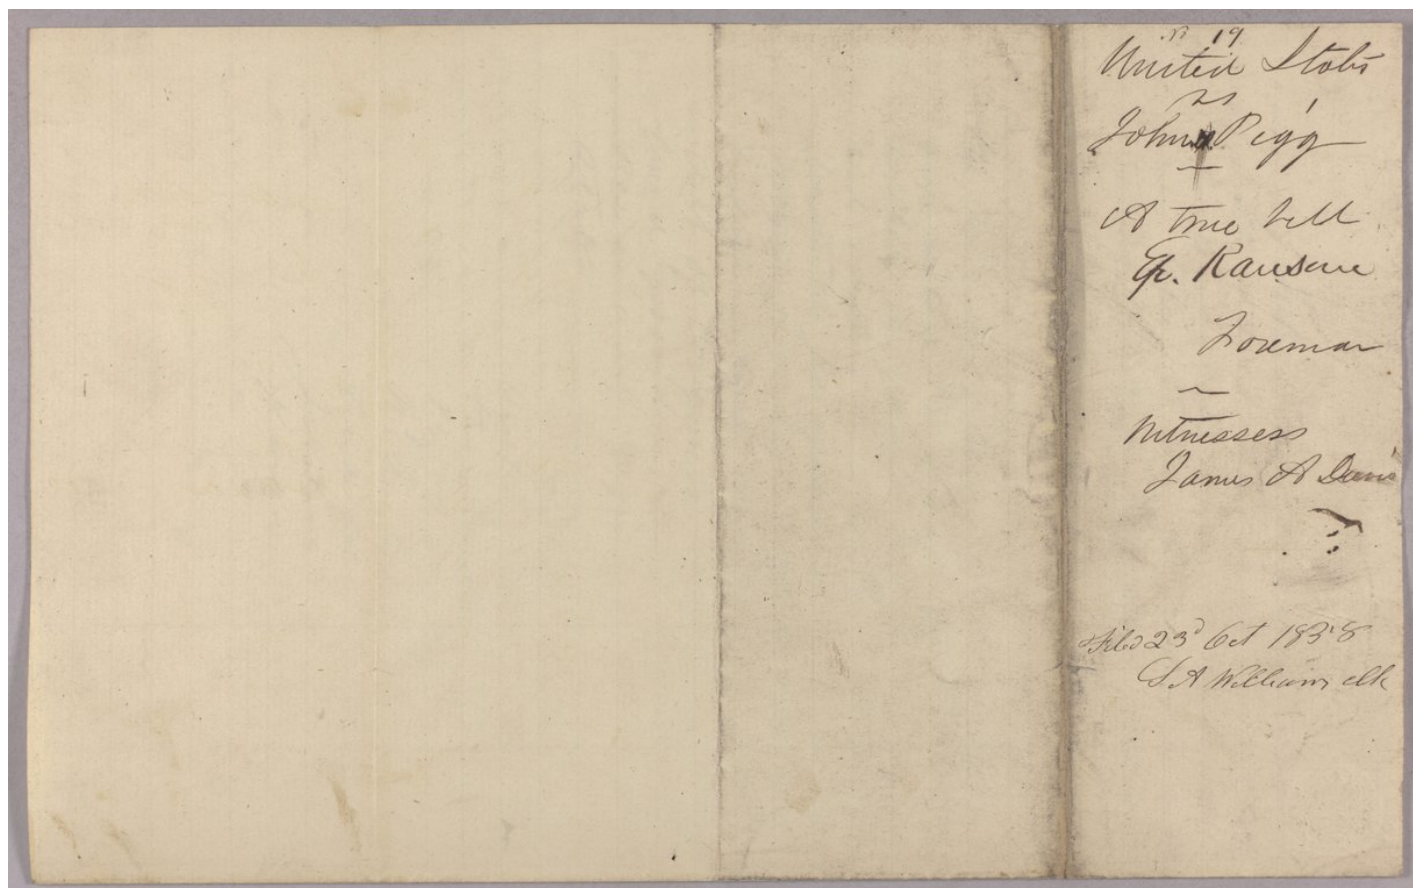 N 19
United States
vs
John Pigg
A true bill
Ep. Ransom
Foreman
Witnesses
James A Davis
Filed 23d Oct 1838
S A Williams clk